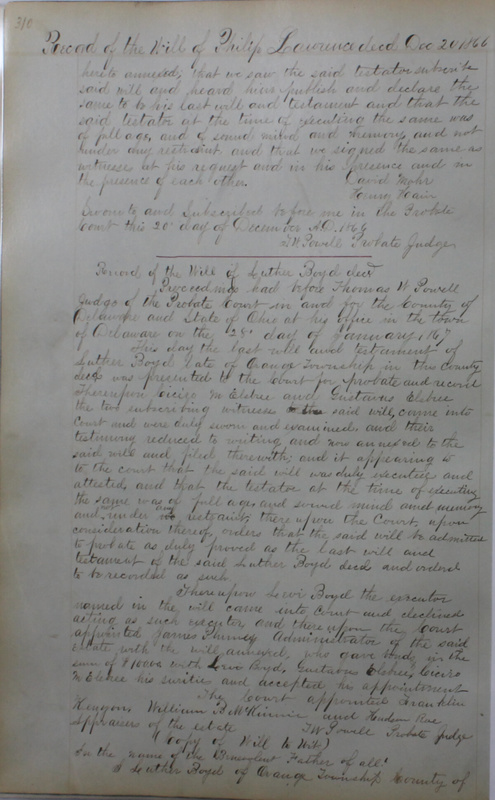 310
Record of the Will of Philip Lawrence decd Dec 20 1866
hereto annexed, that we saw the said testator subscribe
said will and heard him publish and declare the
same to be his last will and testament and that the
said testator at the time of executing the same was
of full age, and of sound mind and memory and not
under any restraint and that we signed the same as
witnesses at his request and in his presence and in
the presence of each other.
David Mohr
Henry Hain
Sworn to and Subscribed before me in the Probate
Court this 20th day of December A.D. 1866
T.W. Powell Probate Judge
Record of the Will of Luther Boyd decd
Proceedings had before Thomas W Powell
Judge of the Probate Court in and for the County of
Delaware and State of Ohio at his office in the town
of Delaware on the day of January 1867
This day the last will and testament of
Luther Boyd late of Orange Township in this County
decd was presented to the Court for probate and record
Thereupon Cicero M Elsbree and Gustavus Elsbree
the two subscribing witnesses to the said will, came into
Court and were duly sworn and examined and their
testimony reduced to writing and now annexed to the
said will and filed therewith; and it appearing to
to the court that the said will was duly executed and
attested, and that the testator at the time of executing
the same was of full age and sound mind and memory
and under restraint; thereupon the Court, upon
consideration thereof, orders that the said will be admitted
to probate as duly proved as the last will and
testament of the said Luther Boyd decd and ordered
to be recorded as such
Thereupon Levi Boyd the executor
named in the will came into Court and declined
acting as such executor and thereupon the Court
appointed James Administrator of the said
estate with the will annexed, who gave bond in the
sum of $1000 with Levi Boyd, Gustavus Elsbree, Cicero
M Elsbree his surities and accepted his appointment
The Court appointed Franklin
William B McKinnie and Hudson Rue
Appraisers of the estate T.W Powell Probate Judge
(Copy of Will to Wit)
In the name of the Benevolent Father of all
I Luther Boyd of Orange Township County of